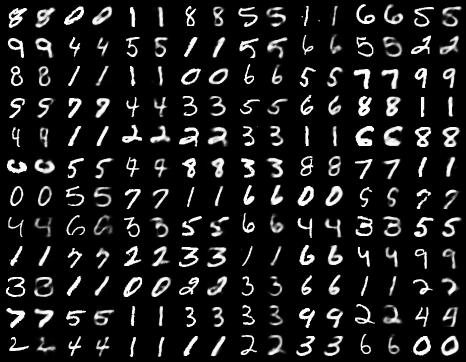 8 8 0 0 1 1 8 8 5 5 1 1 6 6 5 5
9 9 4 4 5 5 1 1 5 5 6 6 5 5 2 2
8 8 1 1 1 1 0 0 6 6 5 5 7 7 9 9
9 9 7 7 4 4 3 3 5 5 6 6 8 8 1 1
4 9 1 1 2 2 2 2 3 3 1 1 6 6 8 8
5 5 4 4 8 8 3 3 8 8 7 7 1 1
0 0 5 5 7 7 1 1 6 6 0 0 5 5 7 7
4 4 6 6 3 3 5 5 6 6 4 4 3 3 5 5
1 1 7 7 2 2 3 3 1 1 6 6 4 4 9 9
3 3 1 1 0 0 2 2 3 3 6 6 1 1 2 2
7 7 5 5 1 1 3 3 3 3 9 9 2 2 4 4
2 2 4 4 1 1 1 1 2 2 3 3 6 6 0 0